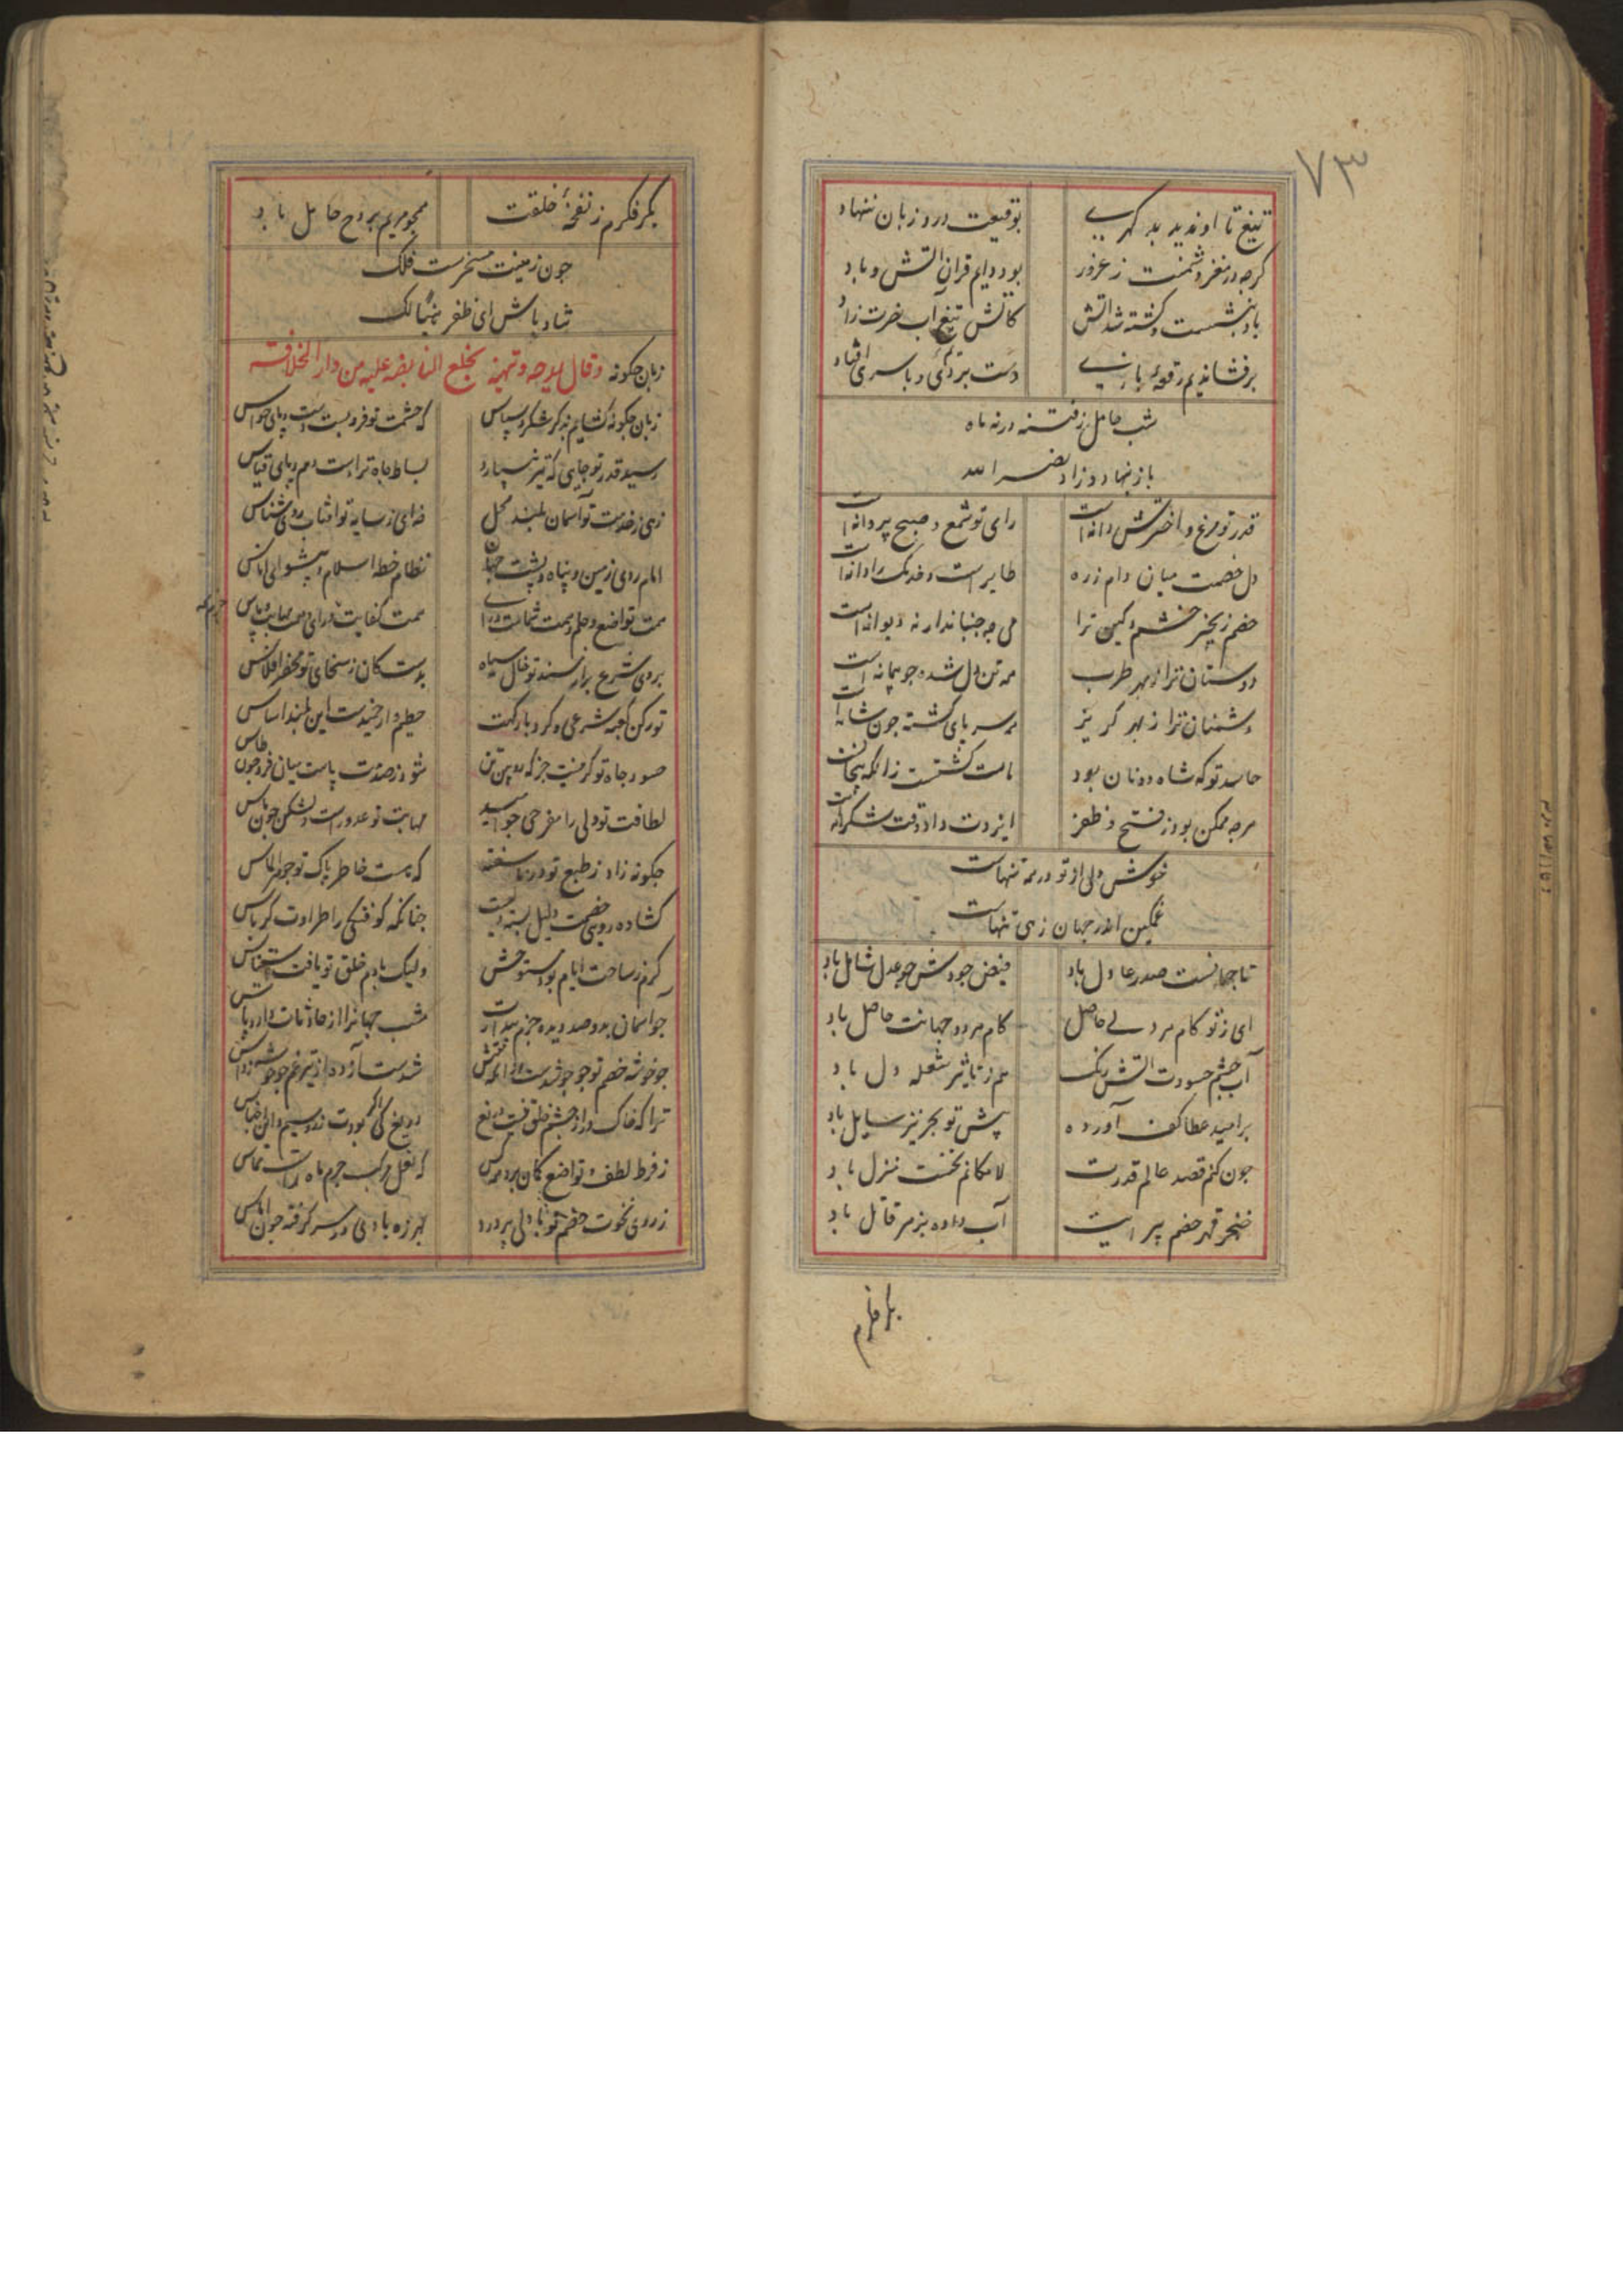 ۷۳
تیغ تا او ندید بد گهری توقیعت درو زبان ننهاد
گرچه در مغز دشمنت ز غرور بود دایم قران آتش و باد
باد بنشست و کشته شد آتش کاتش تیغ آب خورت زاد
برفشاندیم رقعه بازیی دست بردی و با سری افتاد
شب حامل ز فتنه در نه ماه
باز بنهاد و زاد نصر الله
قدر تو مرغ و اخترش دانه است رای تو شمع و صبح پروانه است
دل خصمت میان دام زره طایر است و خدنگ را دانه است
خصم زنجیر خشم و کین ترا می چه جنباند ار نه دیوانه است
دوستان ترا ز بهر طرب همه تن دل شده چو پیمانه است
دشمنان ترا ز بهر گریز سر پای گشته چون شانه است
حاسد تو که شاه دونان بود مات گشتست زانکه بیخانه است
هرچه ممکن بود ز فتح و ظفر ایزدت داد وقت شکرانه است
خوش دلی از تو در همه تنهاست
غمگین اندر جهان زهی تنهاست
تا جهانست صدر عادل باد فیض جودش چو عدل شامل باد
ای ز تو کام هر دلی حاصل کام هر دو جهانت حاصل باد
آب چشم حسودت آتش رنگ هم ز تاثیر شعله دل باد
بر امید عطا کف آورده پیش تو بحر نیز سایل باد
چون کنم قصد عالم قدرت لامکانم نخست منزل باد
خنجر قهر خصم پیرایت آب داده بزهر قاتل باد
بکر فکرم
بکر فکرم ز نفخهٔ خلقت همچو مریم بروح حامل باد
چون زمینت مسخرست فلک
شاد باش ای ظفر
زبان چگونه وقال یمدحه و تهنیه بخلع الفایضه علیه من دار الخلافه
زبان چگونه گشایم بذکر شکر و سپاس که حشمت تو فرو بست دست و پای حواس
رسید قدر تو جایی که نیز نسپارد بساط جاه ترا دست وهم و پای قیاس
زهی ز خدمت تو آسمان بلند محل خهی ز سایه تو آفتاب روی شناس
امام روی زمین و پناه و پشت جهان نظام خطه اسلام و پیشوای اناس
بروی شرع بر از مسند تو خال سیاه بدست کان ز سخای تو محضر افلاس
تو رکن کعبه شرعی و گرد بارگهت حطیم وار خمیدست این بلند اساس
حسود جاه تو گر نیست جز که رویین تن شود ز صدمت یاست میان فرو چون طاس
لطافت تو دلی را مفرحی چو امید مهابت تو عدو راست دلشکن چون یاس
چگونه زاد ز طبع تو در ناسفته که هست خاطر پاک تو جوهر الماس
گشاده رویی خصمت دلیل بسته دلیست چنانکه کوفتگی را طراوت کرباس
کرم ز ساحت ایام بود مستوحش ولیک با دم خلق تو یافت استیناس
چو آسمان بدو صد دیده حزم بیدارت شب جهانرا از حادثات دارد پاس
چو خوشه خصم تو جو جو شدست
ترا که خاک در از چشم خلق نیست دریغ دریغ کی بودت زر و سیم و این اجناس
ز فرط لطف و تواضع گمان برد هر کس که نعل مرکب جرم ماه راست مماس
ز روی نخوت خصم تو با دلی پر درد بهرزه بادی در سر گرفته چون اماس